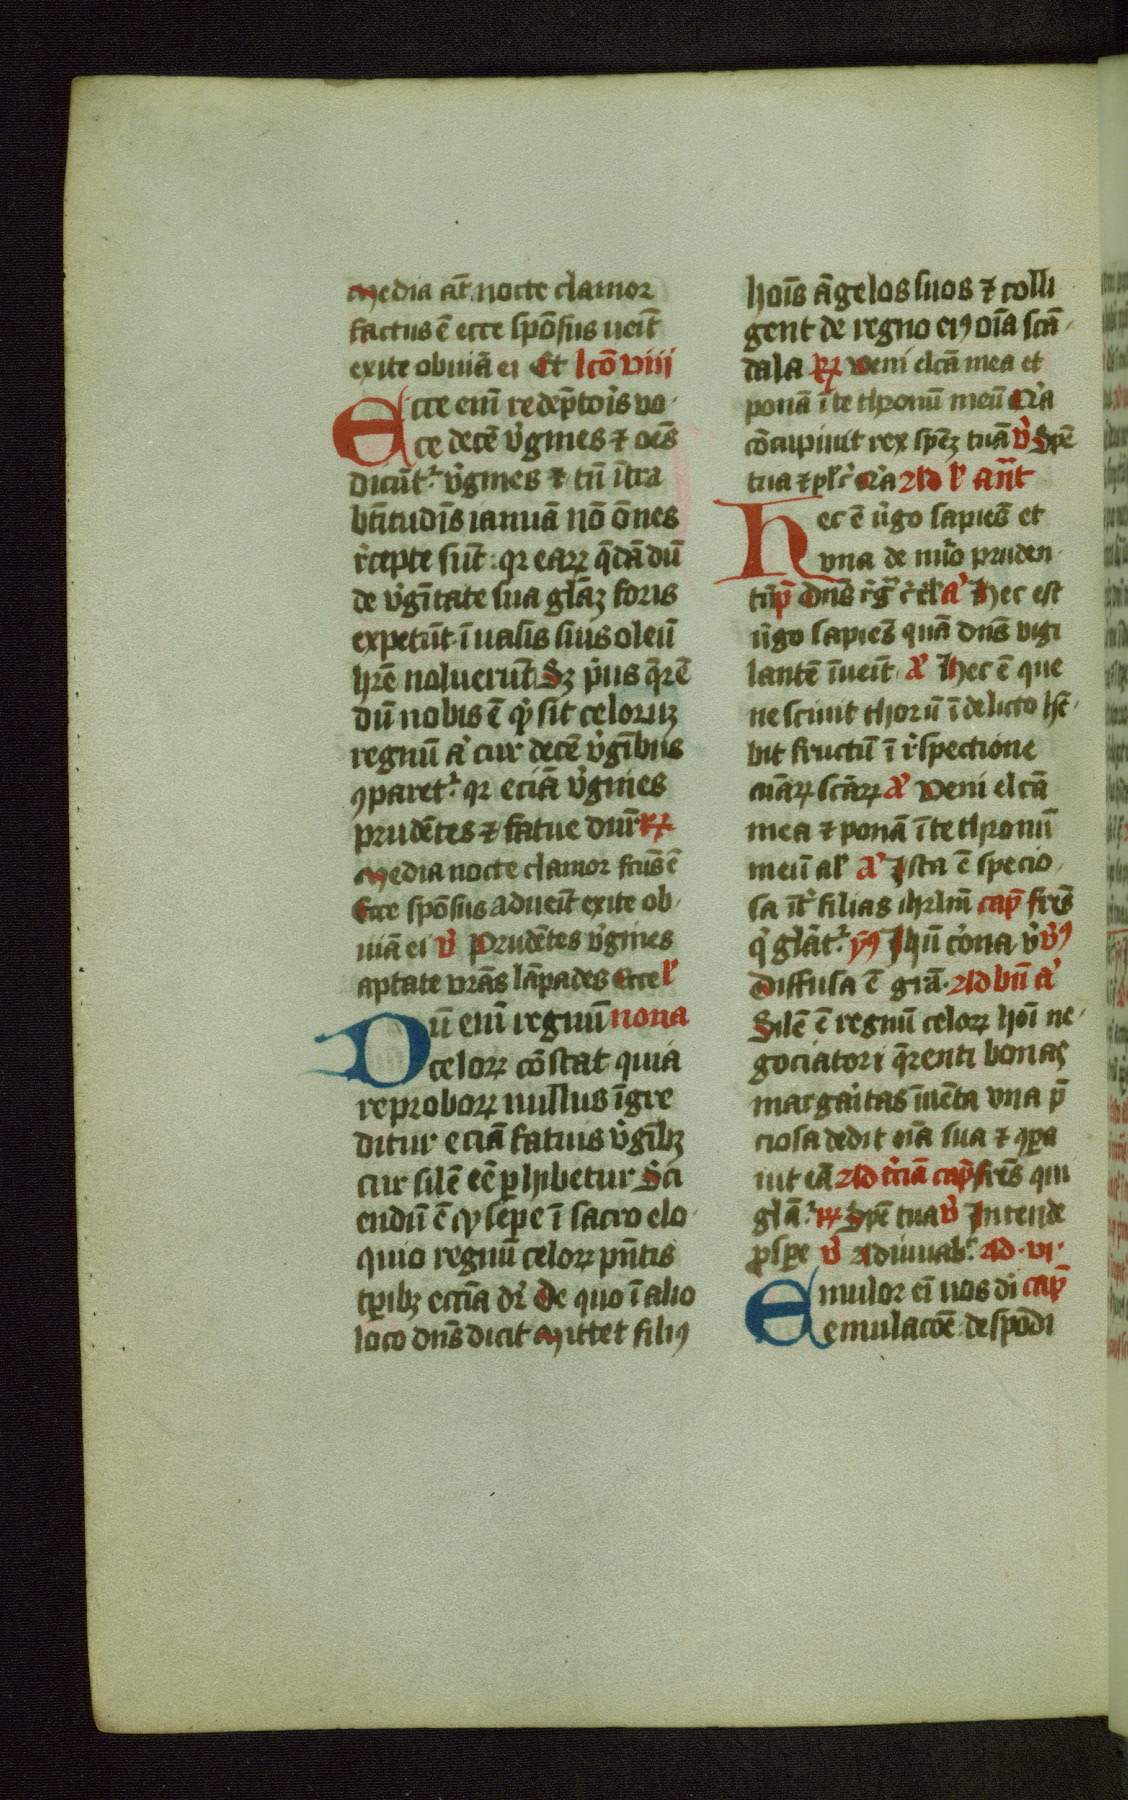 Media aūt nocte clamor
factus ē ecce spōsus ueīt
exite obuiā ei Et lcō viiij
Ecce enī redēptoīs uo
ce decē v̓gines ⁊ oēs
dicūt᷑ v̓gines ⁊ tn̄ ītra
bt̄itudīs ianuā nō ōnes
r̓cepte sūt qr earꝝ q̄dā dū
de v̓gītate sua glāꝫ foris
expetūt ī uasis suis oleū
hr̄e noluerūt Sꝫ p̓us q̄rē
dū nobis ē qͥd sit celoruꝫ
regnū aͭ cur decē v̓gībus
ꝯparet᷑ qr eciā v̓gines
prudētes ⁊ fatue dnr̄ ℟
Media nocte clamor fcūs ē
Ecce spōsus adueīt exite ob
uiā ei v̓ Prudētes v̓gines
aptate vrās lāpades Ecce l̓
Dū enī regnū nona
celorꝝ cōstat quia
reproborꝝ nullus īgre
ditur eciā fatuis v̓gībꝫ
cur silē eē ꝑhibetur Sci
endū ē qͥ sepe ī sacro elo
quio regnū celorꝝ pn̄tis
tꝑibꝫ eccīa dr̄ De quo ī alio
loco dn̄s dicit Mittet filiꝰ
hoīs āgelos suos ⁊ colli
gent de regno eiꝰ oīa scā
dala ℟ Veni elcā mea et
ponā ī te thronū meū Qͥa
cōcupiuit rex spēꝫ tuā v̓ Spē
tua ⁊ pl̓c̓ Qͥa Ad l̓ an̄t
Hec ē v̓go sapiēs et
vna de nūo pruden
tū p̄ Dn̄s r̓g̓ r̓ēl̓ a̓ Hec est
v̓go sapiēs quā dn̄s vigi
lantē īueīt a̓ Hec ē que
nesciuit thorū ī delicto hē
bit fructū ī r̓spectione
aīarꝝ scārꝝ a̓ Veni elcā
mea ⁊ ponā ī te thronū
meū al̓ a̓ Ista ē specio
sa īt̓ filias ihrlm̄ cap̄ frēs
qͥ glāt᷑ ymꝰ Ihū c̓ona v̓ v̓ꝰ
Diffusa ē grā Ad bn̄ a̓
Silē ē regnū celorꝝ hoī ne
gociatori q̄renti bonas
margaͥtas īuēta vna p̄
ciosa dedit oīa sua ⁊ ꝯꝑa
uit eā Ad t̓ciā cap̄ frēs qui
glā᷑ ℟ Spē tua v̓ Intende
ꝓspe v̓ Adiuuab᷑ Ad vi
Emulor eī uos di cap̄
emulacōe despōdi